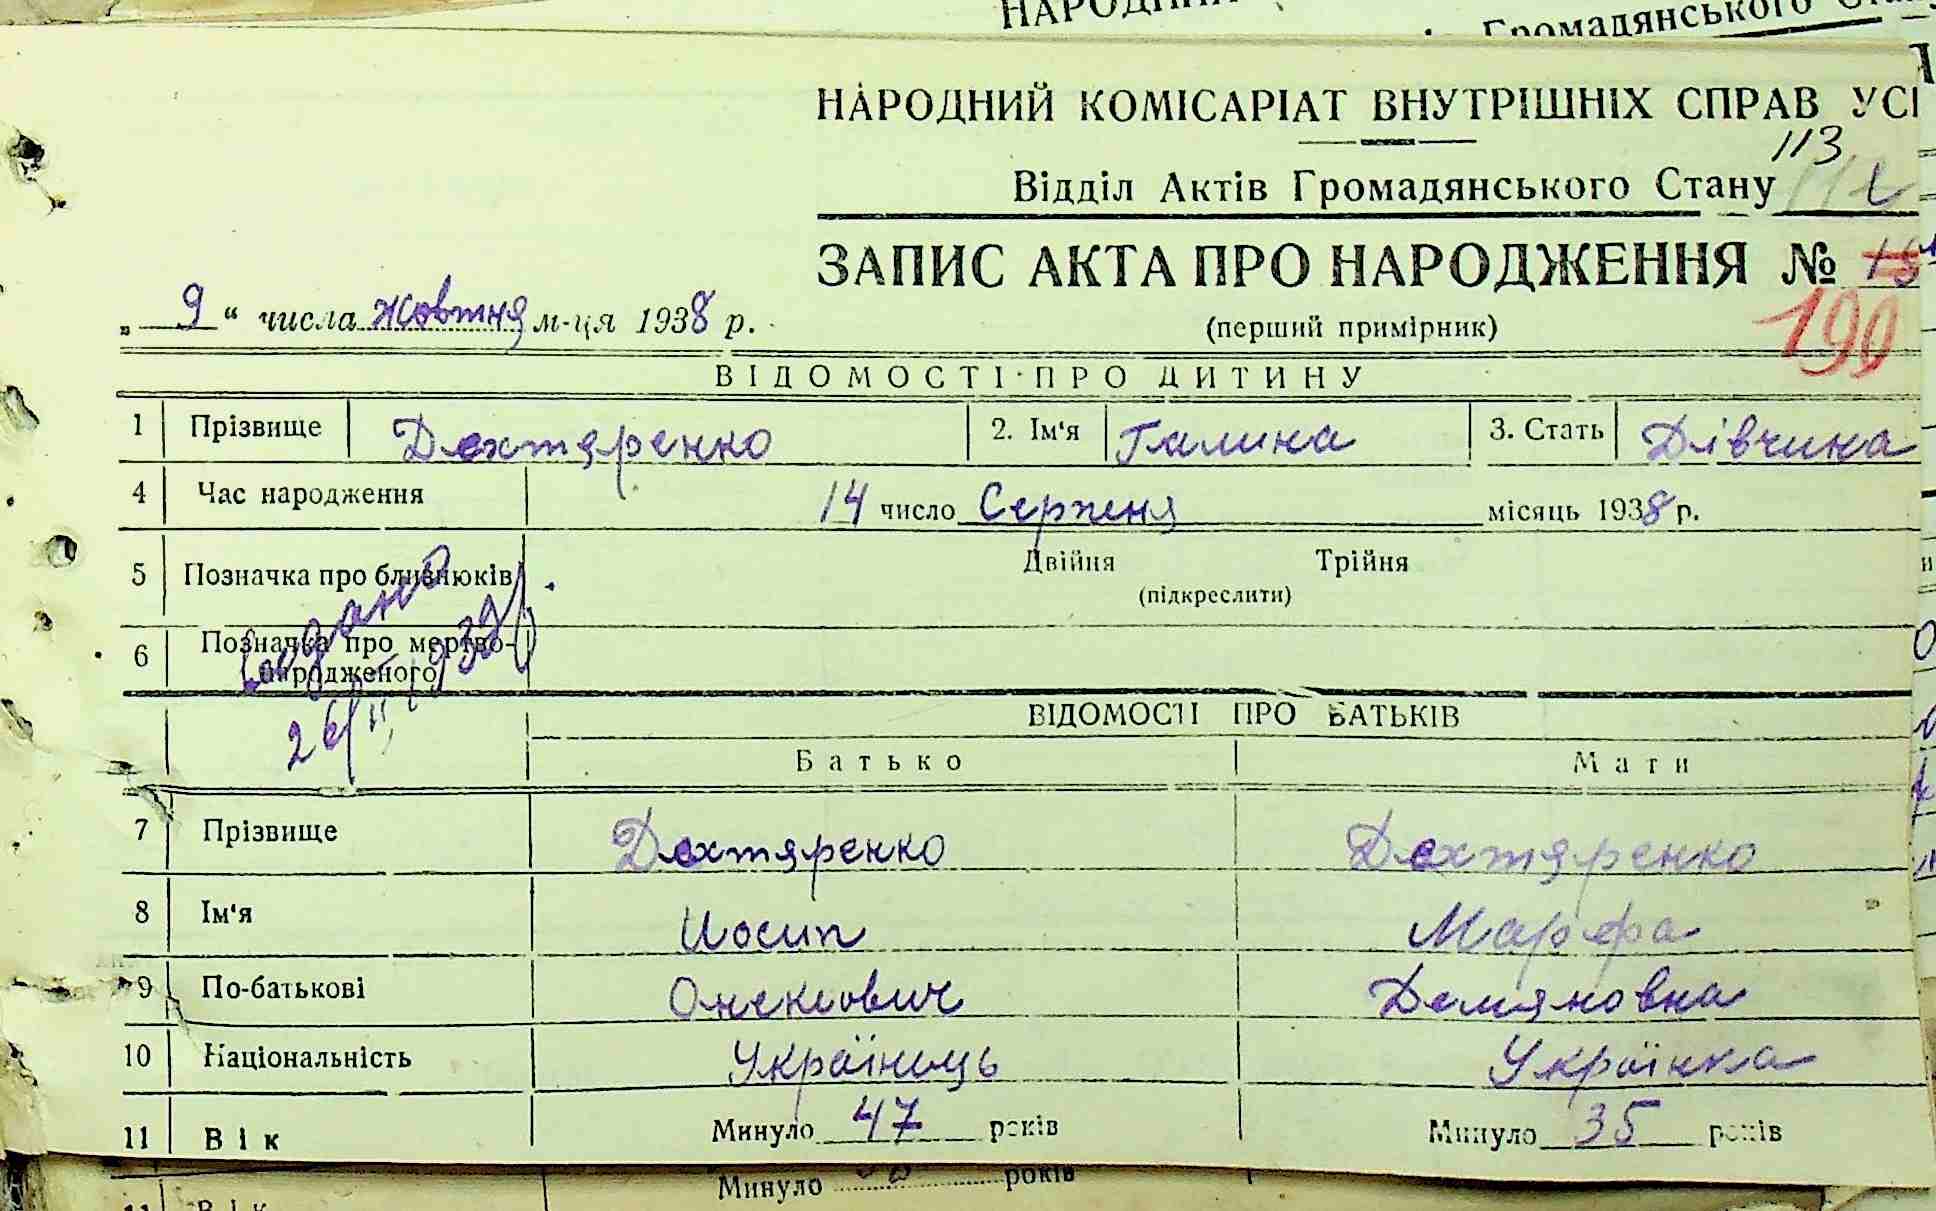 НАРОДНИЙ
Громадянського
НАРОДНИЙ КОМІСАРІАТ ВНУТРІШНІХ СПРАВ УСІ
113
Відділ Актів Громадянського Стану
ЗАПИС АКТА ПРО НАРОДЖЕННЯ №
190
„ 9 “ числа жовтня м-ця 1938 р.
(перший примірник)
ВІДОМОСТІ ПРО ДИТИНУ
1 Прізвище Дехтяренко 2. Ім'я Галина 3. Стать Дівчина
4 Час народження 14 число Серпеня місяць 1938 р.
5 Позначка про близнюків Двійня Трійня
(підкреслити)
6 Позначка про мертво-
народженого
ВІДОМОСТІ ПРО БАТЬКІВ
Батько Мати
7 Прізвище Дехтяренко Дехтяренко
8 Ім'я Иосип Марфа
9 По-батькові Онекіович Демяновна
10 Національність Українець Українка
11 Вік Минуло 47 років Минуло 35 років
Минуло років
11 Вік